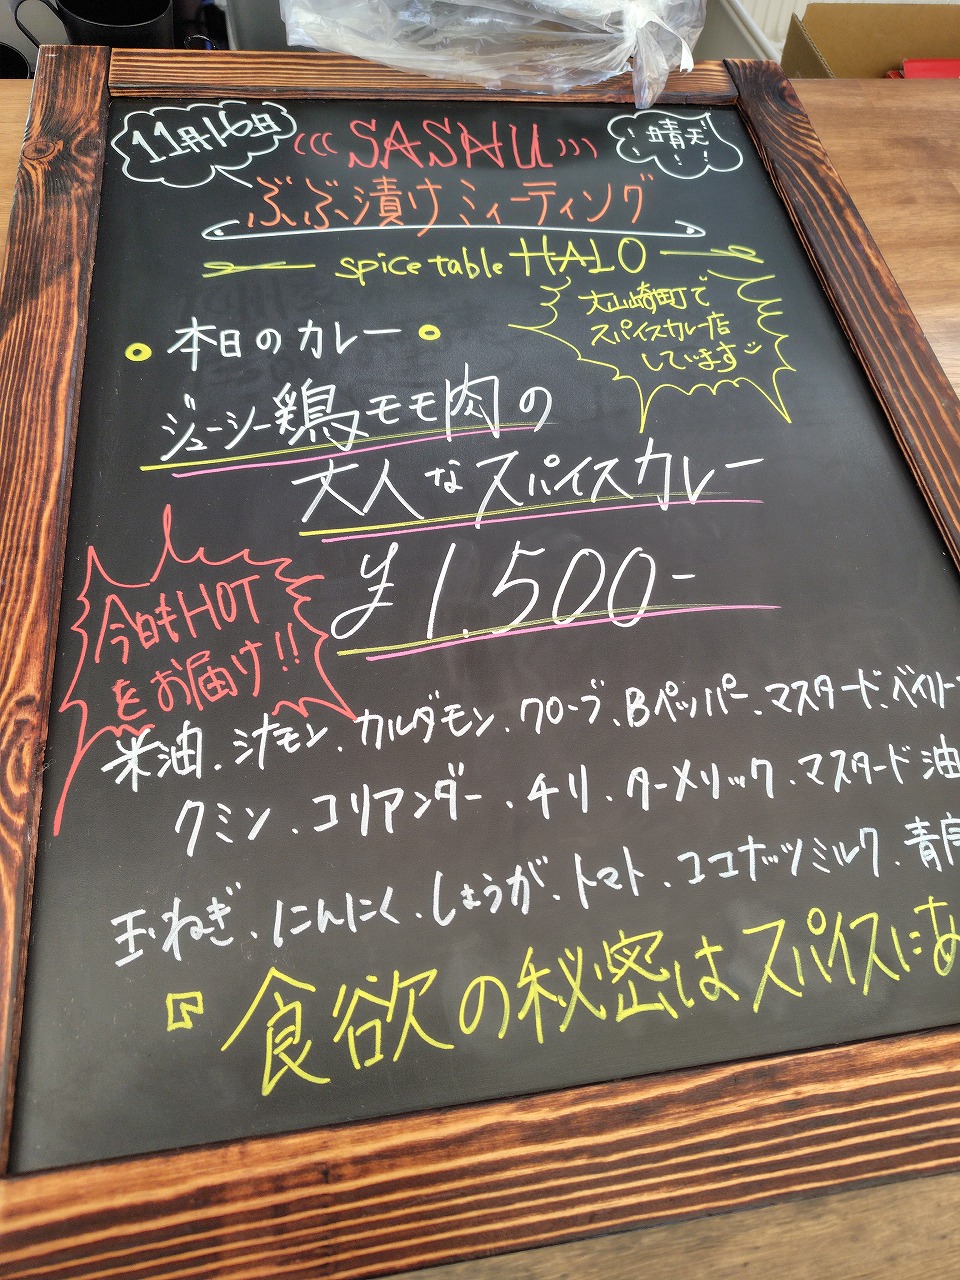 11月16日
(((SASHU)))
晴天!!!
ぶぶ漬けミーティング
spice table HALO
大山崎町で
スパイスカレー店
しています
本日のカレー
ジューシー鶏モモ肉の
大人なスパイスカレー
¥1,500-
今日もHOT
をお届け!!
米油、シナモン、カルダモン、クローブ、Bペッパー、マスタード、ベイリー
クミン、コリアンダー、チリ、ターメリック、マスタード油
玉ねぎ、にんにく、しょうが、トマト、ココナッツミルク、青唐
『食欲の秘密はスパイスにあ